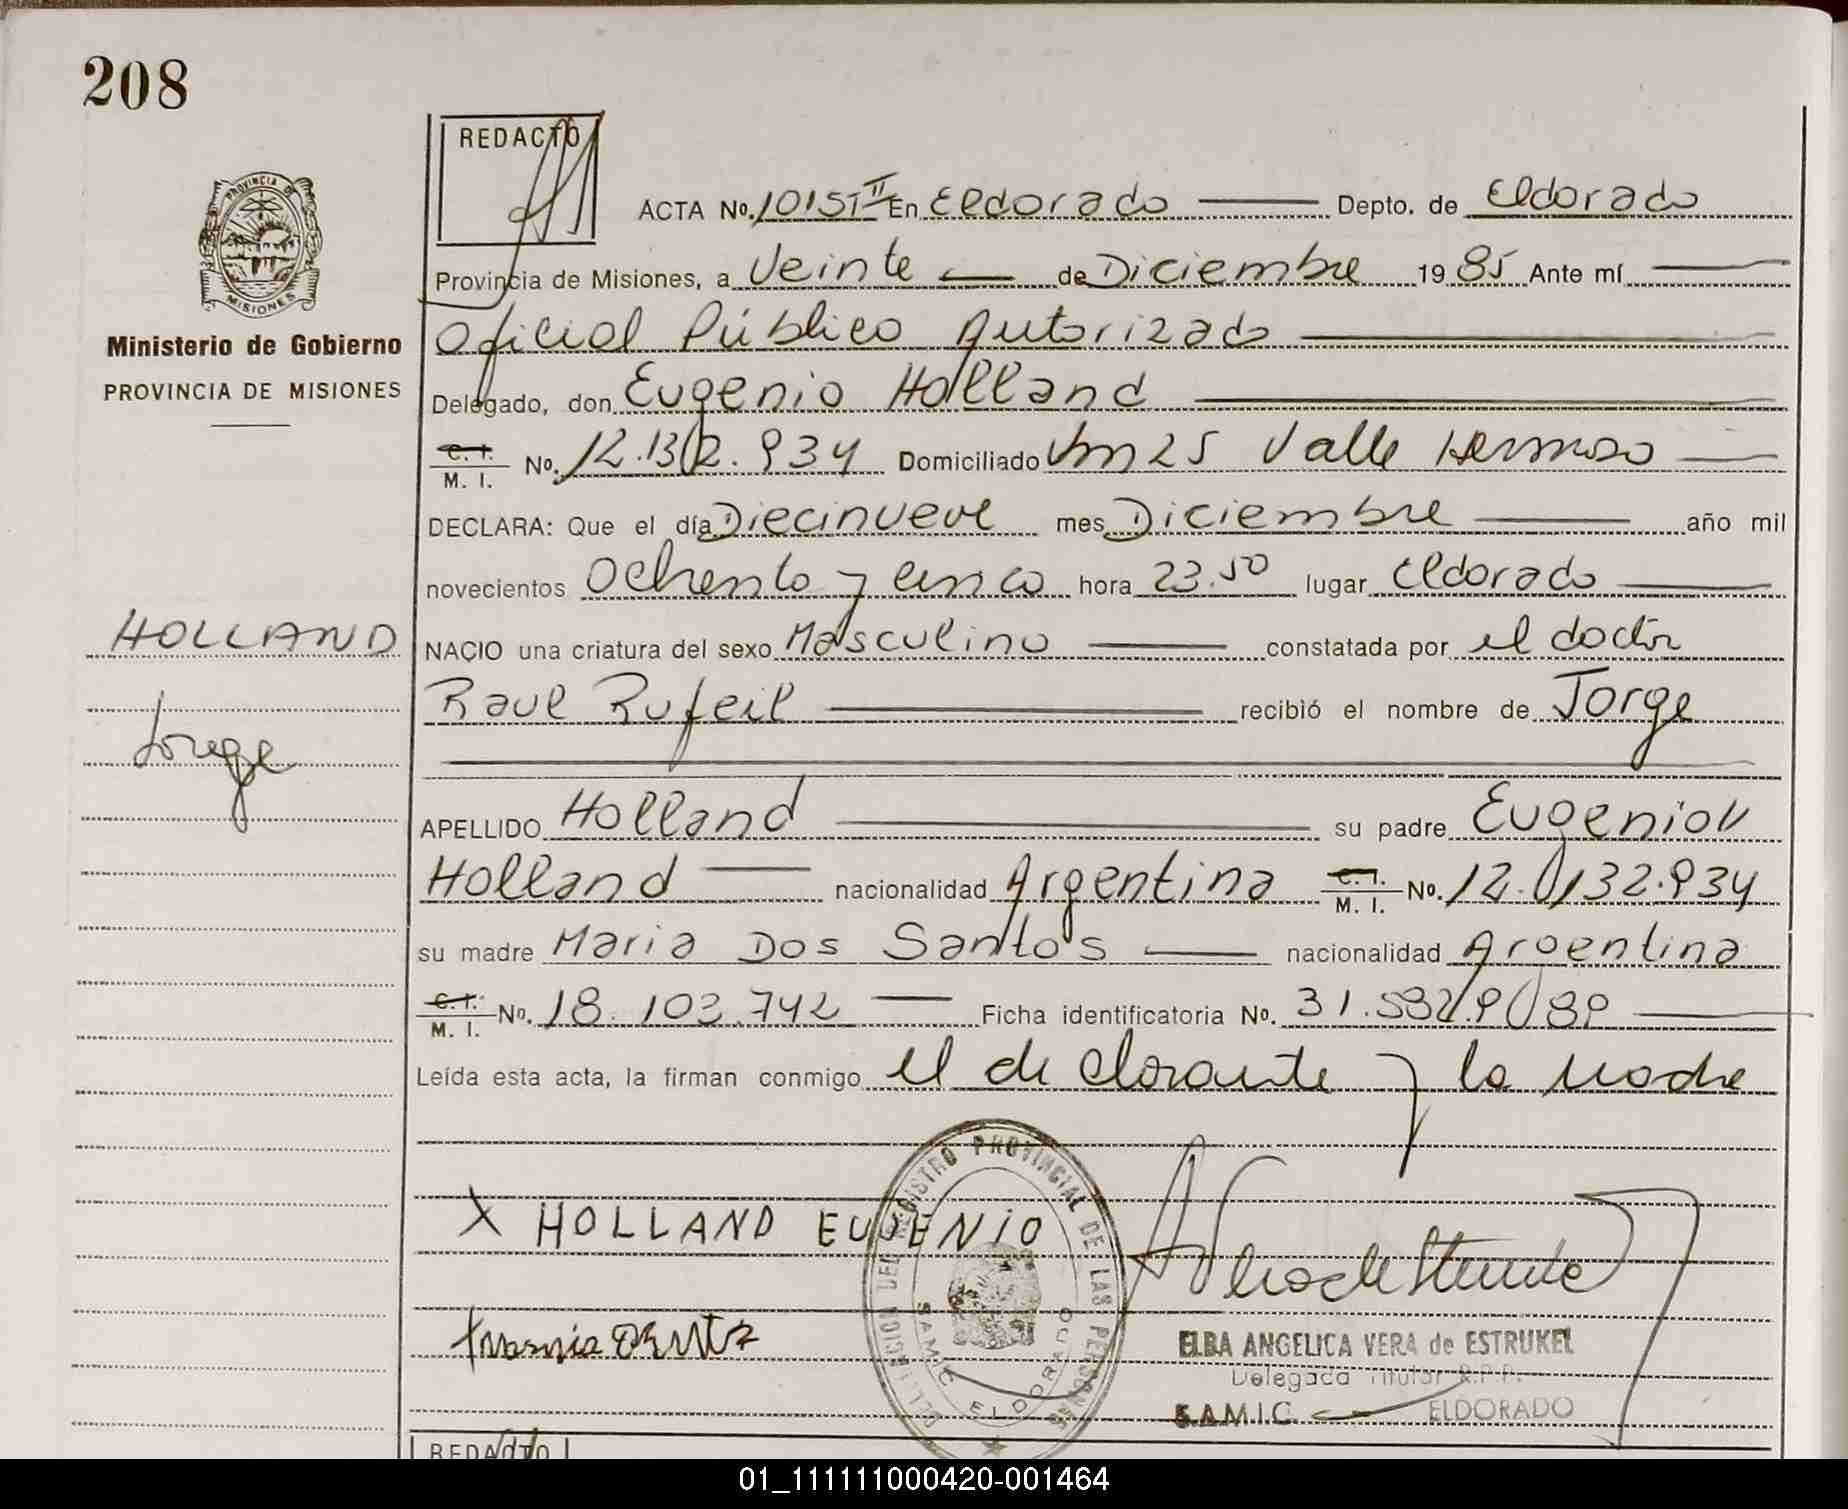 208
REDACTO
ACTA No. 1015 T II En Eldorado Depto. de Eldorado
PROVINCIA DE
MISIONES
Provincia de Misiones, a Veinte de Diciembre 1985 Ante mí
Ministerio de Gobierno
PROVINCIA DE MISIONES
Oficial Público Autorizado
Delegado, don Eugenio Holland
C. I. / M. I. No. 12.132.934 Domiciliado Km 25 Valle Hermoso
DECLARA: Que el día Diecinueve mes Diciembre año mil
novecientos Ochenta y cinco hora 23.50 lugar Eldorado
HOLLAND
Jorge
NACIO una criatura del sexo Masculino constatada por el doctor
Raul Rufeil recibió el nombre de Jorge
APELLIDO Holland su padre Eugenio
Holland nacionalidad Argentina C. I. / M. I. No. 12.132.934
su madre Maria Dos Santos nacionalidad Argentina
C. I. / M. I. No. 18.103.742 Ficha identificatoria No.
Leída esta acta, la firman conmigo el declarante y la madre
X HOLLAND EUGENIO
DEL REGISTRO PROVINCIAL DE LAS PERSONAS
SAMIC ELDORADO
ELBA ANGELICA VERA de ESTRUKEL
Delegada Titular R.P.P.
S.A.M.I.C. ELDORADO
REDACTO
01_111111000420-001464